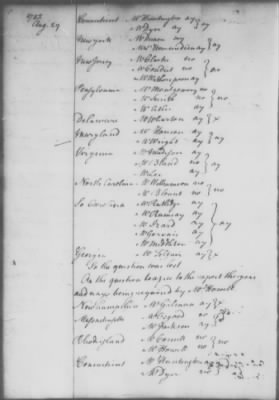 1782
Aug. 29
Connecticut Mr Huntington ay
Mr Dyer ay } ay
New york Mr Duane ay
Mr L'Hommedieu ay } ay
New Jersey Mr Clarke no
Mr Condict no } no
Mr Witherspoon ay
Pensylvania Mr Montgomery no
Mr Smith no } no
Mr Atlee ay
Delaware Mr Wharton ay } x
Maryland Mr Hanson ay
Mr Wright ay } ay
Virginia Mr Madison ay
Mr Bland no } ay
Mr Lee ay
North Carolina Mr Williamson no
Mr Blount no } no
So Carolina Mr Rutledge ay
Mr Ramsay ay
Mr Izard ay } ay
Mr Gervais ay
Mr Middleton ay
Georgia Mr Telfair ay } x
So the question was lost
On the question to agree to the report the yeas
and nays being required by Mr Howell
New hampshire Mr Gilman ay } x
Massachusetts Mr Osgood no
Mr Jackson ay
Rhodeisland Mr Cornell no
Mr Howell no } no
Connecticut Mr Huntington
Mr Dyer no